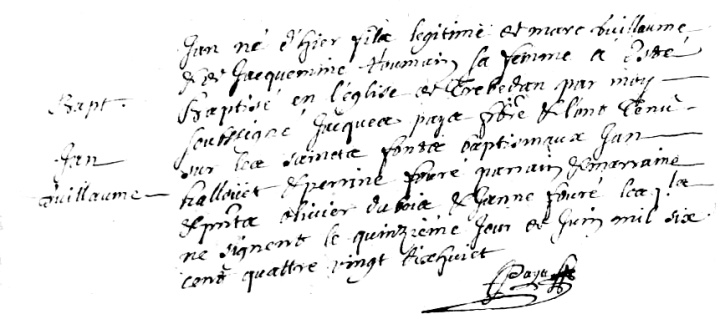 Bapt
Jan
Guillaume
Jan né d'hier fils legitime de marc Guillaume
& de Jacquemine Roumain sa femme a esté
Baptisé en l'eglise de Trebedan par moy
soubsigné Jacques paya pbre & l'ont tenu
sur les saincts fonds baptismaux Jan
hallouet & perrine fouré parrain & marraine
& pnts olivier dubois & Janne fouré lesqls
ne signent le quinzieme Jour de Juin mil six
cents quattre vingt dixhuict